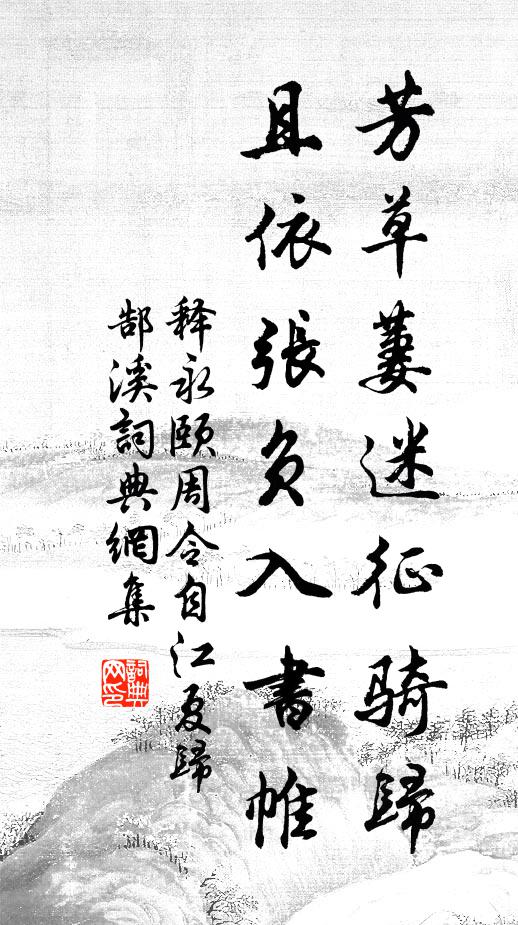 芳草萋迷征骑歸
且依張負入書帷
释永頤周令自江夏歸
郜溪詞典網集
詞典网印